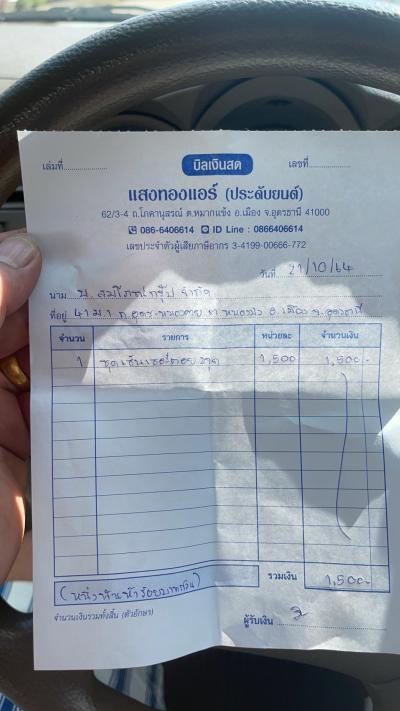 บิลเงินสด
เล่มที่ เลขที่
แสงทองแอร์ (ประดับยนต์)
62/3-4 ถ.โภคานุสรณ์ ต.หมากแข้ง อ.เมือง จ.อุดรธานี 41000
086-6406614 ID Line : 0866406614
เลขประจำตัวผู้เสียภาษีอากร 3-4199-00666-772
วันที่ 21/10/64
นาม จำกัด
ที่อยู่ 41 ม.1 ถ.อุดร- อ.เมือง จ.อุดรธานี
จำนวน รายการ หน่วยละ จำนวนเงิน
1 ชุดเซ็นเซอร์ 1,500 1,500-
รวมเงิน 1,500-
(หนึ่งพันห้าร้อยบาทถ้วน)
จำนวนเงินรวมทั้งสิ้น (ตัวอักษร)
ผู้รับเงิน